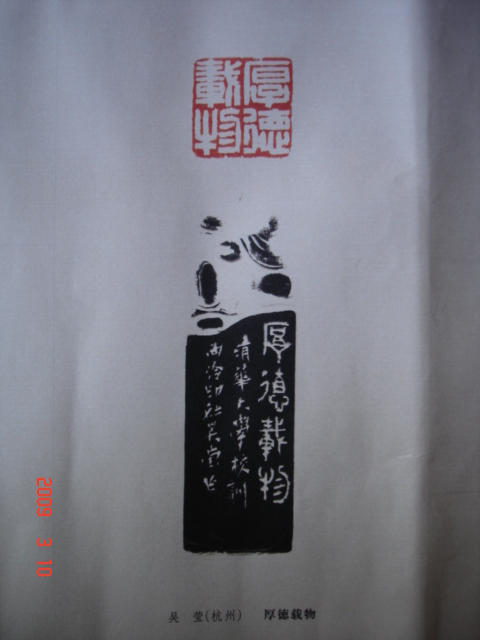 厚德
載物
厚德載物
清華大學校訓
西泠印社吴莹作
2009 3 10
吴 莹(杭州) 厚德载物